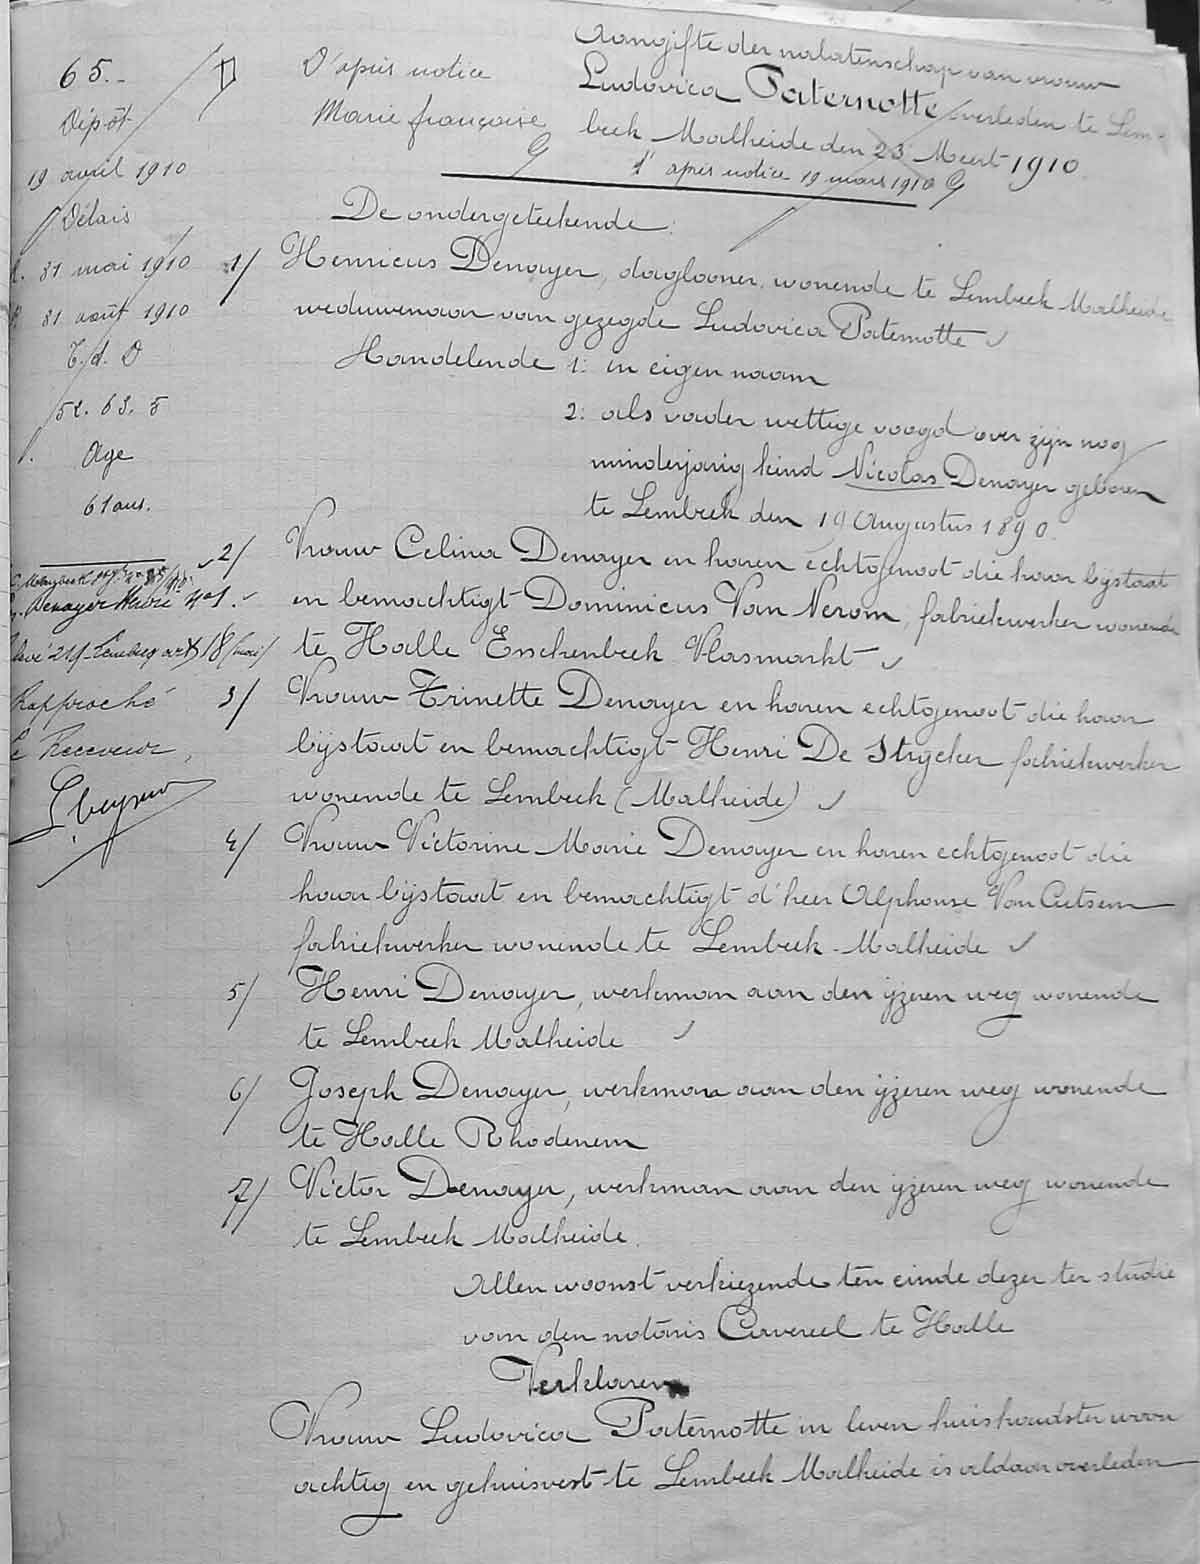 65.-
Dépôt
19 avril 1910
Délais
31 mai 1910
31 août 1910
T. d. D
52. 63. 5
Age
61 ans.
Denayer Marie n°1.
Rapproché
Le Receveur,
D'après notice
Marie françoise
Aangifte der nalatenschap van vrouw
Ludovica Paternotte overleden te Lem-
beek Malheide den 23 Meert 1910
d'après notice 19 mars 1910
De ondergeteekende:
1/ Henricus Denayer, daglooner, wonende te Lembeek Malheide
weduwenaar van gezegde Ludovica Paternotte
Handelende 1: in eigen naam
2: als vader wettige voogd over zijn nog
minderjarig kind Nicolas Denayer geboren
te Lembeek den 19 Augustus 1890.
2/ Vrouw Celina Denayer en haren echtgenoot die haar bijstaat
en bemachtigt Dominicus Van Nerom, fabriekwerker wonende
te Halle Esschenbeek Vlasmarkt
3/ Vrouw Trinette Denayer en haren echtgenoot die haar
bijstaat en bemachtigt Henri De Strycker fabriekwerker
wonende te Lembeek (Malheide)
4/ Vrouw Victorine Marie Denayer en haren echtgenoot die
haar bijstaat en bemachtigt d'heer Alphonse Van Cutsem
fabriekwerker wonende te Lembeek-Malheide
5/ Henri Denayer, werkman aan den yzeren weg wonende
te Lembeek Malheide
6/ Joseph Denayer, werkman aan den yzeren weg wonende
te Halle Rhodenem
7/ Victor Denayer, werkman aan den yzeren weg wonende
te Lembeek Malheide.
Allen woonst verkiezende ten einde dezer ter studie
van den notaris Cavereel te Halle
Verklaren
Vrouw Ludovica Paternotte in leven huishoudster woon
achtig en gehuisvest te Lembeek Malheide is aldaar overleden